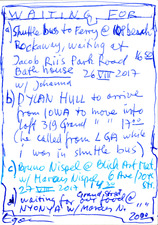 WAITING FOR
a) Shuttle bus to Ferry @ 108 beach
Rockaway, waiting at
Jacob Riis Park Road
Bath house 26 VIII 2017
w/ Johanna
b) DYLAN HULL to arrive
from IOWA to move into
loft 319 Grand "" 17
he called from LGA while
i was in shuttle bus
c) Bruno Nispel @
w/ Marcus Nispel 6 Ave/20 str
27 VIII 2017
d) waiting for our food @
NYONYA w/ Marcus N. ""
Ego 20